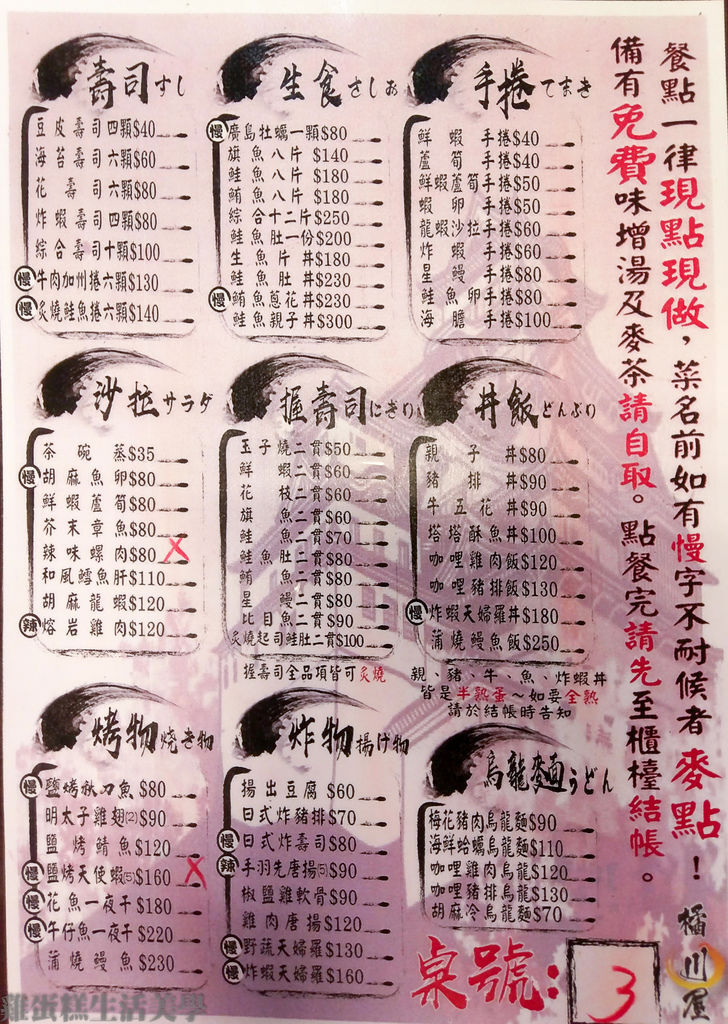 餐點一律現點現做，菜名前如有慢字不耐候者麥點！
備有免費味增湯及麥茶請自取。點餐完請先至櫃檯結帳。
壽司すし
豆皮壽司四顆$40
海苔壽司六顆$60
花壽司六顆$80
炸蝦壽司四顆$80
綜合壽司十顆$100
慢 牛肉加州捲六顆$130
慢 炙燒鮭魚捲六顆$140
生食さしお
慢 廣島牡蠣一顆$80
旗魚八片 $140
鮭魚八片 $180
鮪魚八片 $180
綜合十二片$250
鮭魚肚一份$200
生魚片丼$180
鮭魚肚丼$230
慢 鮪魚蔥花丼$230
鮭魚親子丼$300
手捲てまき
鮮蝦手捲$40
蘆筍手捲$40
鮮蝦蘆筍手捲$50
蝦卵手捲$50
龍蝦沙拉手捲$60
炸蝦手捲$60
星鰻手捲$80
鮭魚卵手捲$80
海膽手捲$100
沙拉サラダ
茶碗蒸$35
慢 胡麻魚卵$80
鮮蝦蘆筍$80
芥末章魚$80
辣味螺肉$80
和風鱈魚肝$110
胡麻龍蝦$120
辣 熔岩雞肉$120
握壽司にぎり
玉子燒二貫$50
鮮蝦二貫$60
花枝二貫$60
旗魚二貫$60
鮭魚二貫$70
鮭魚肚二貫$80
鮪魚二貫$80
星鰻二貫$80
比目魚二貫$90
炙燒起司鮭肚二貫$100
握壽司全品項皆可炙燒
丼飯どんぶり
親子丼$80
豬排丼$90
牛五花丼$90
塔塔酥魚丼$100
咖哩雞肉飯$120
咖哩豬排飯$130
慢 炸蝦天婦羅丼$180
蒲燒鰻魚飯$250
親、豬、牛、魚、炸蝦丼
皆是半熟蛋～如要全熟
請於結帳時告知
烤物焼き物
慢 鹽烤秋刀魚$80
明太子雞翅(2)$90
鹽烤鯖魚$120
慢 鹽烤天使蝦(5)$160
慢 花魚一夜干$180
慢 牛仔魚一夜干$220
蒲燒鰻魚$230
炸物揚げ物
揚出豆腐 $60
日式炸豬排$70
慢 日式炸壽司$80
辣 手羽先唐揚(5)$90
椒鹽雞軟骨$90
雞肉唐揚$120
慢 野蔬天婦羅$130
慢 炸蝦天婦羅$160
烏龍麵うどん
梅花豬肉烏龍麵$90
海鮮蛤蠣烏龍麵$110
咖哩雞肉烏龍麵$120
咖哩豬排烏龍麵$130
胡麻冷烏龍麵$70
桌號:3
橘川屋
雞蛋糕生活美學